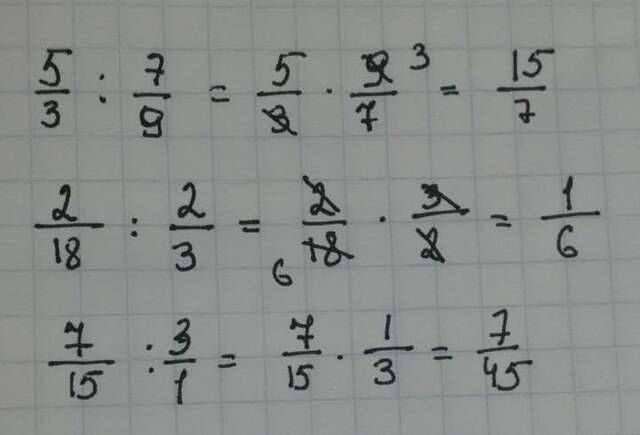 5/3 : 7/9 = 5/3 · 9/7 3 = 15/7
2/18 : 2/3 = 2/18 6 · 3/2 = 1/6
7/15 : 3/1 = 7/15 · 1/3 = 7/45